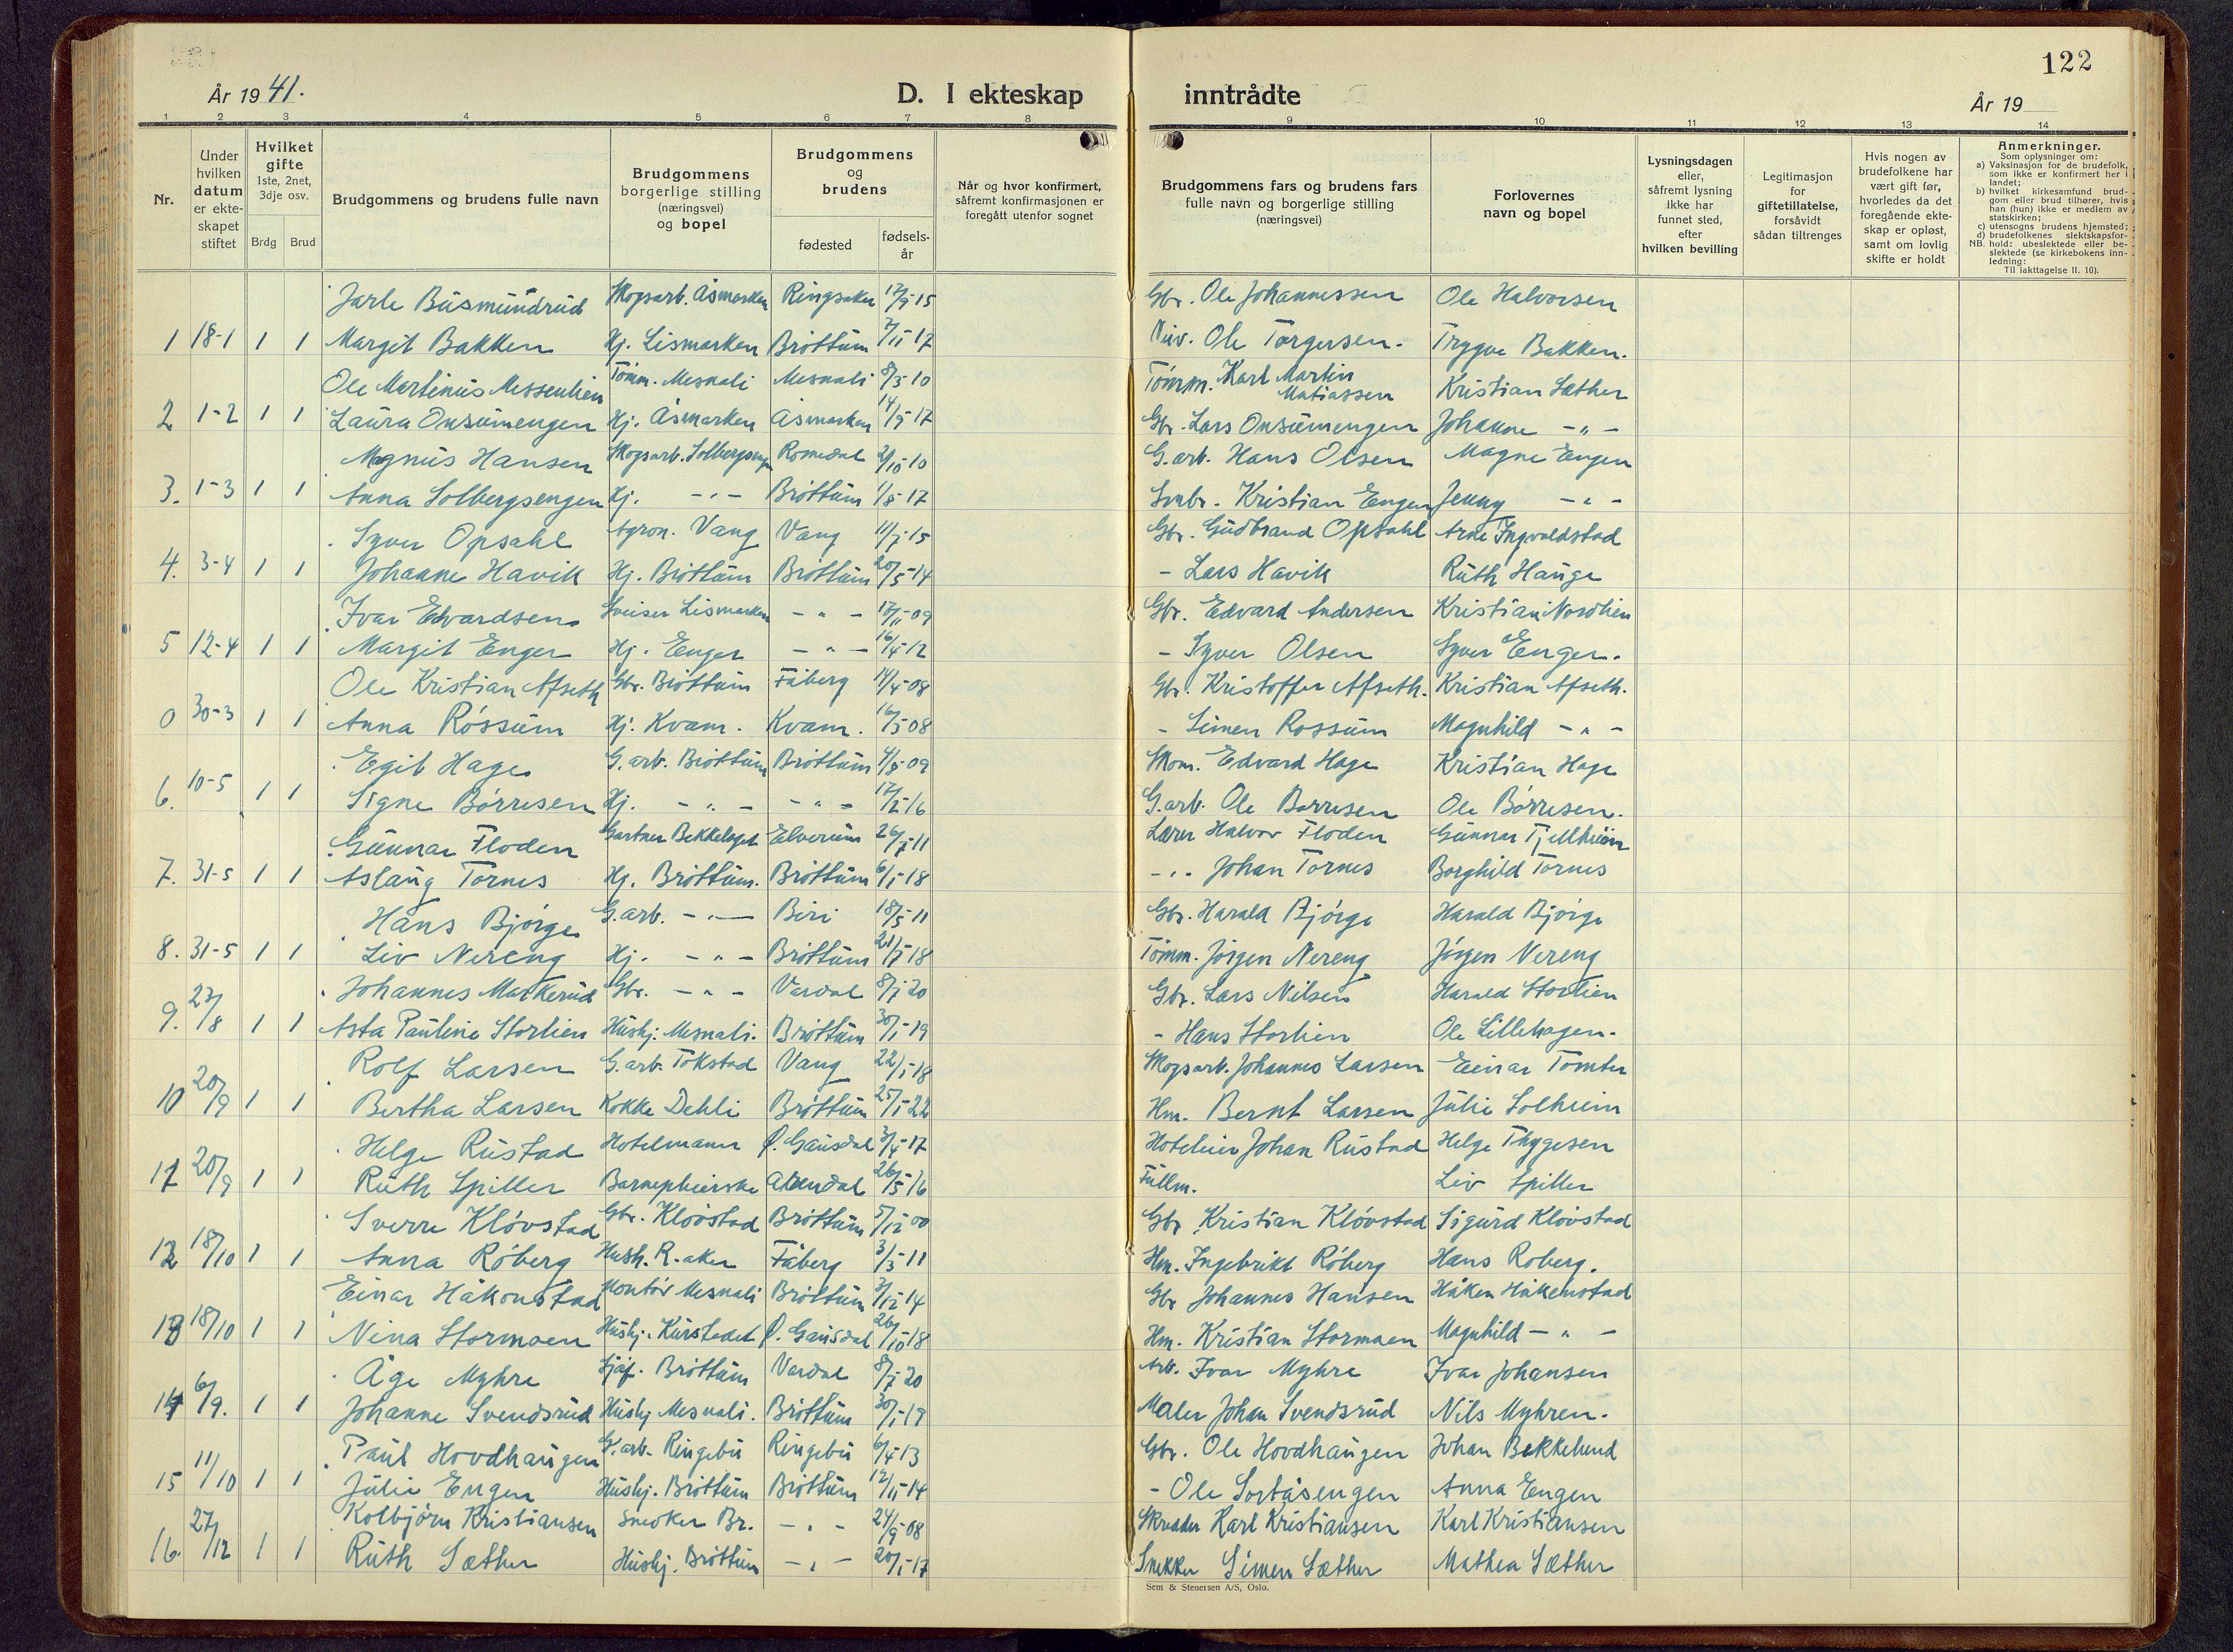 122
År 1941.
D. I ekteskap inntrådte
År 19
1 2 3 4 5 6 7 8 9 10 11 12 13 14
Nr.
Under hvilken datum er ekteskapet stiftet
Hvilket gifte 1ste, 2net, 3dje osv.
Brdg Brud
Brudgommens og brudens fulle navn
Brudgommens borgerlige stilling (næringsvei) og bopel
Brudgommens og brudens
fødested
fødsels-år
Når og hvor konfirmert, såfremt konfirmasjonen er foregått utenfor sognet
Brudgommens fars og brudens fars fulle navn og borgerlige stilling (næringsvei)
Forlovernes navn og bopel
Lysningsdagen eller, såfremt lysning ikke har funnet sted, efter hvilken bevilling
Legitimasjon for giftetillatelse, forsåvidt sådan tiltrenges
Hvis nogen av brudefolkene har vært gift før, hvorledes da det foregående ekteskap er opløst, samt om lovlig skifte er holdt
Anmerkninger.
Som oplysninger om:
a) Vaksinasjon for de brudefolk, som ikke er konfirmert her i landet;
b) hvilket kirkesamfund brudgom eller brud tilhører, hvis han (hun) ikke er medlem av statskirken;
c) utensogns brudens hjemsted;
d) brudefolkenes slektskapsfor-
NB. hold: ubeslektede eller beslektede (se kirkebokens innledning:
Til iakttagelse II. 10).
Jarle Busmundrud Skogsarb. Åsmarken Ringsaker 12/9-15 Gbr. Ole Johannessen Ole Halvorsen
1 18-1 1 1 Margit Bakken Hj. Lismarken Brøttum 2/11-17 Ole Torgersen. Trygve Bakken.
Ole Martinus Messenlien Tømm. Mesnali Mesnali 8/3-10 Tømm. Karl Martin Matiassen Kristian Sæther
2 1-2 1 1 Laura Onsumengen Hj. Åsmarken Åsmarken 14/9-17 Gbr. Lars Onsumengen Johanne -"-
Magnus Hansen Skogsarb. Solbergsengen Romedal 2/10-10 G.arb. Hans Olsen Magne Engen
3. 1-3 1 1 Anna Solbergsengen Hj. -"- Brøttum 1/8-17 Smbr. Kristian Engen Jenny -"-
Syver Opsahl Agron. Vang Vang 11/7-15 Gbr. Gudbrand Opsahl Arne Ingvoldstad
4. 3-4 1 1 Johanne Havik Hj. Brøttum Brøttum 20/5-14 - Lars Havik Ruth Hauge
Ivar Edvardsen Sveiser Lismarken -"- 17/11-09 Gbr. Edvard Andersen Kristian Nordlien
5 12-4 1 1 Margit Enger Hj. Enger -"- 16/4-12 - Syver Olsen Syver Enger.
Ole Kristian Afseth Gbr. Brøttum Fåberg 14/4-08 Gbr. Kristoffer Afseth. Kristian Afseth.
0 30-3 1 1 Anna Røssum Hj. Kvam. Kvam. 16/5-08 - Simen Rossum Magnhild -"-
Egil Hage G.arb. Brøttum Brøttum 4/8-09 Skom. Edvard Hage Kristian Hage
6. 10-5 1 1 Signe Børresen Hj. -"- -"- 17/2-16 G.arb. Ole Børresen Ole Børresen.
Gunnar Floden Gartner Bekkelaget Elverum 26/7-11 Lærer Halvor Floden Gunnar Tjellheim
7. 31-5 1 1 Aslaug Tornes Hj. Brøttum. Brøttum 6/1-18 -"- Johan Tornes Borghild Tornes
Hans Bjørge G.arb. -"- Biri 18/5-11 Gbr. Harald Bjørge Harald Bjørge
8. 31-5 1 1 Liv Nereng Hj. -"- Brøttum 21/7-18 Tømm. Jørgen Nereng Jørgen Nereng
Johannes Markerud Gbr. -"- Vardal 8/7-20 Gbr. Lars Nilsen Harald Storlien
9. 23/8 1 1 Asta Pauline Storlien Hushj. Mesnali. Brøttum 30/1-19 - Hans Storlien Ole Lillehagen.
Rolf Larsen G.arb. Tokstad Vang 22/1-18 Skogsarb. Johannes Larsen Einar Tomter
10 20/9 1 1 Bertha Larsen Kokke Dehli Brøttum 25/1-22 Hm. Bernt Larsen Julie Solheim
Helge Rustad Hotelmann Ø. Gausdal 3/4-17 Hoteleier Johan Rustad Helge Thygesen
11 20/9 1 1 Ruth Spiller Barnepleierske Arendal 26/5-16 Fullm. Liv Spiller
Sverre Kløvstad Gbr. Kløvstad Brøttum 5/12-00 Gbr Kristian Kløvstad Sigurd Kløvstad
12 18/10 1 1 Anna Røberg Hush. R.aker Fåberg 3/3-11 Hm. Ingebrikt Røberg Hans Røberg.
Einar Håkonstad Montør Mesnali Brøttum 3/12-14 Gbr Johannes Hansen Håken Håkenstad
13 18/10 1 1 Nina Stormoen Hushj. Kurstedet Ø. Gausdal 26/10-18 Hm. Kristian Stormoen Magnhild -"-
Åge Myhre Sjåf. Brøttum Vardal 8/7-20 Arb. Ivar Myhre Ivar Johansen
14 6/9. 1 1 Johanne Svendsrud Hushj Mesnali. Brøttum 30/1-19 Maler Johan Svendsrud Nils Myhren.
Paul Hovdhaugen G.arb. Ringebu Ringebu 6/4-13 Gbr. Ole Hovdhaugen Johan Bekkelund
15 11/10 1 1 Julie Engen Hushj. Brøttum Brøttum 12/11-14 - Ole Sortåsengen Anna Engen
Kolbjørn Kristiansen Snekker Br. -"- 24/9-08 Skredder Karl Kristiansen Karl Kristiansen
16. 27/12 1 1 Ruth Sæther Hushj. Brøttum -"- 20/1-17 Snekker Simen Sæther Mathea Sæther
Sem & Stenersen A/S, Oslo.